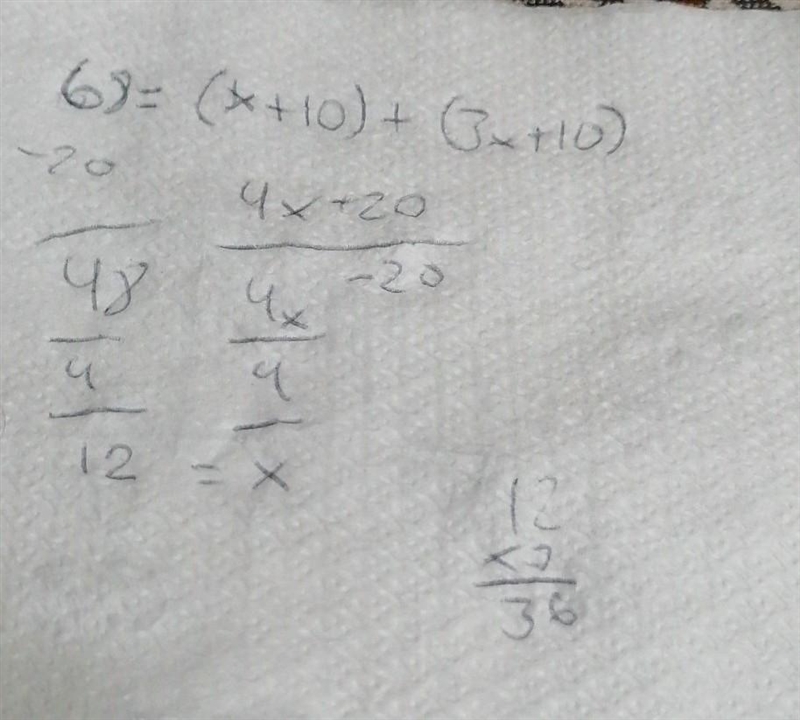 68 = (x+10) + (3x+10)
-20
4x+20
-20
48
4x
4
4
12 = x
12
x3
36